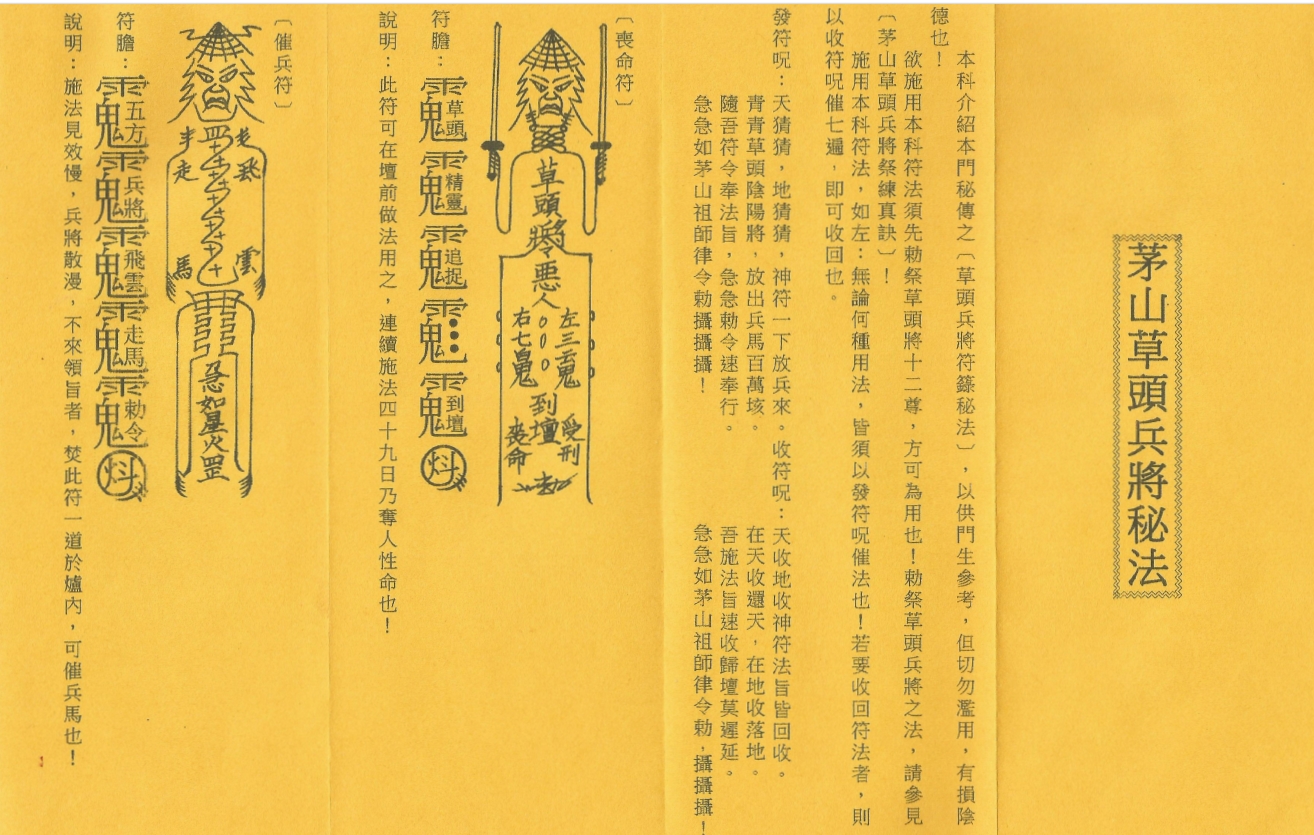 茅山草頭兵將秘法
本科介紹本門秘傳之〔草頭兵將符籙秘法〕，以供門生參考，但切勿濫用，有損陰
德也！
欲施用本科符法須先勅祭草頭將十二尊，方可為用也！勅祭草頭兵將之法，請參見
〔茅山草頭兵將祭練真訣〕！
施用本科符法，如左：無論何種用法，皆須以發符呪催法也！若要收回符法者，則
以收符呪催七遍，即可收回也。
發符呪：天猜猜，地猜猜，神符一下放兵來。
青青草頭陰陽將，放出兵馬百萬垓。
隨吾符令奉法旨，急急勅令速奉行。
急急如茅山祖師律令勅攝攝攝！
收符呪：天收地收神符法旨皆回收。
在天收還天，在地收落地。
吾施法旨速收歸壇莫遲延。
急急如茅山祖師律令勅，攝攝攝！
〔喪命符〕
草頭將令惡人
左三鬼
右七鬼
到壇
受刑
喪命
符膽：
草頭
精靈
追捉
到壇
說明：此符可在壇前做法用之，連續施法四十九日乃奪人性命也！
〔催兵符〕
走
雲
走
馬
急如星火罡
符膽：
五方
兵將
飛雲
走馬
勅令
說明：施法見效慢，兵將散漫，不來領旨者，焚此符一道於爐內，可催兵馬也！